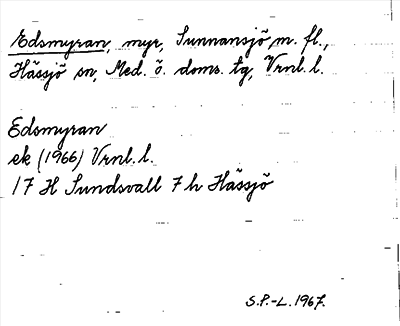 Edsmyran, myr, Sunnansjö, m. fl.,
Hässjö sn, Med. ö. doms. tg, Vrnl. l.
Edsmyran
ek (1966) Vrnl. l.
17 H Sundsvall 7 h Hässjö
S.P.-L. 1967.